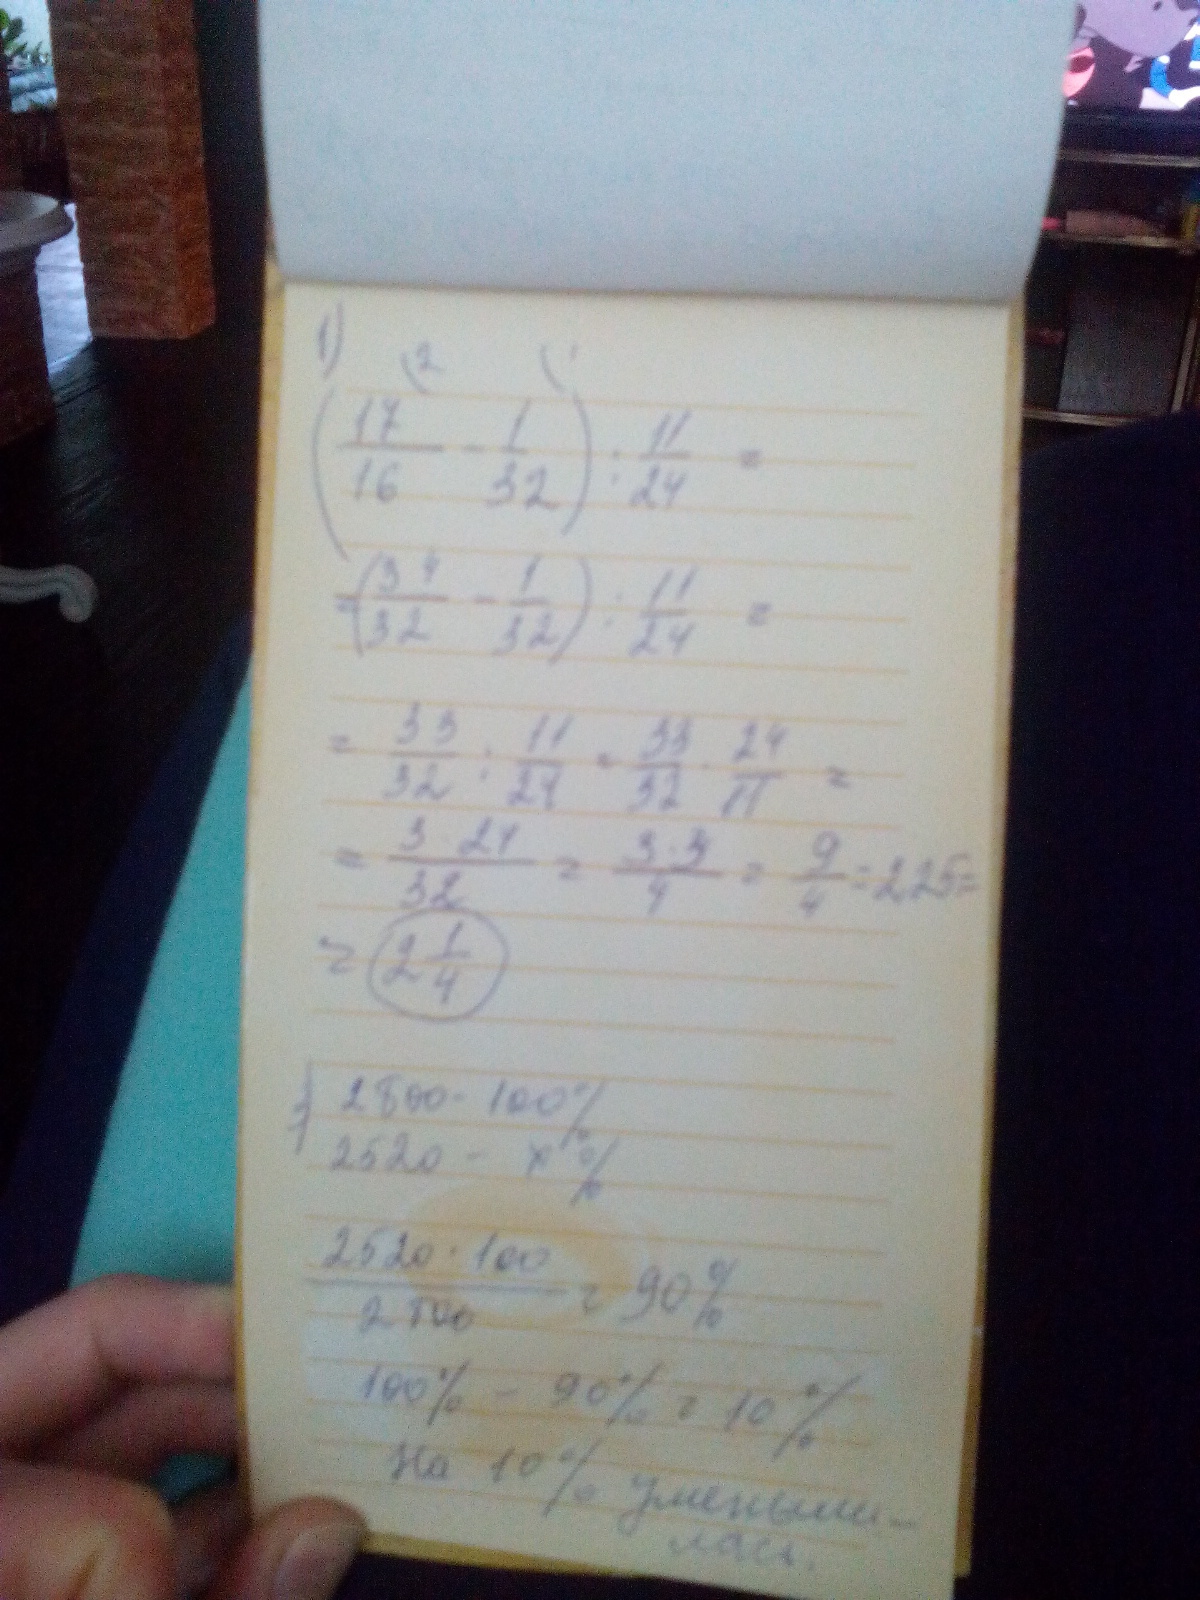 1) 2 1
(17/16 - 1/32) : 11/24 =
=(34/32 - 1/32) : 11/24 =
= 33/32 : 11/24 = 33/32 · 24/11 =
= 3·24/32 = 3·3/4 = 9/4 = 2,25=
= 2 1/4
2800 - 100%
2520 - x%
2520 · 100/2800 = 90%
100% - 90% = 10%
На 10% уменьши-
лась.